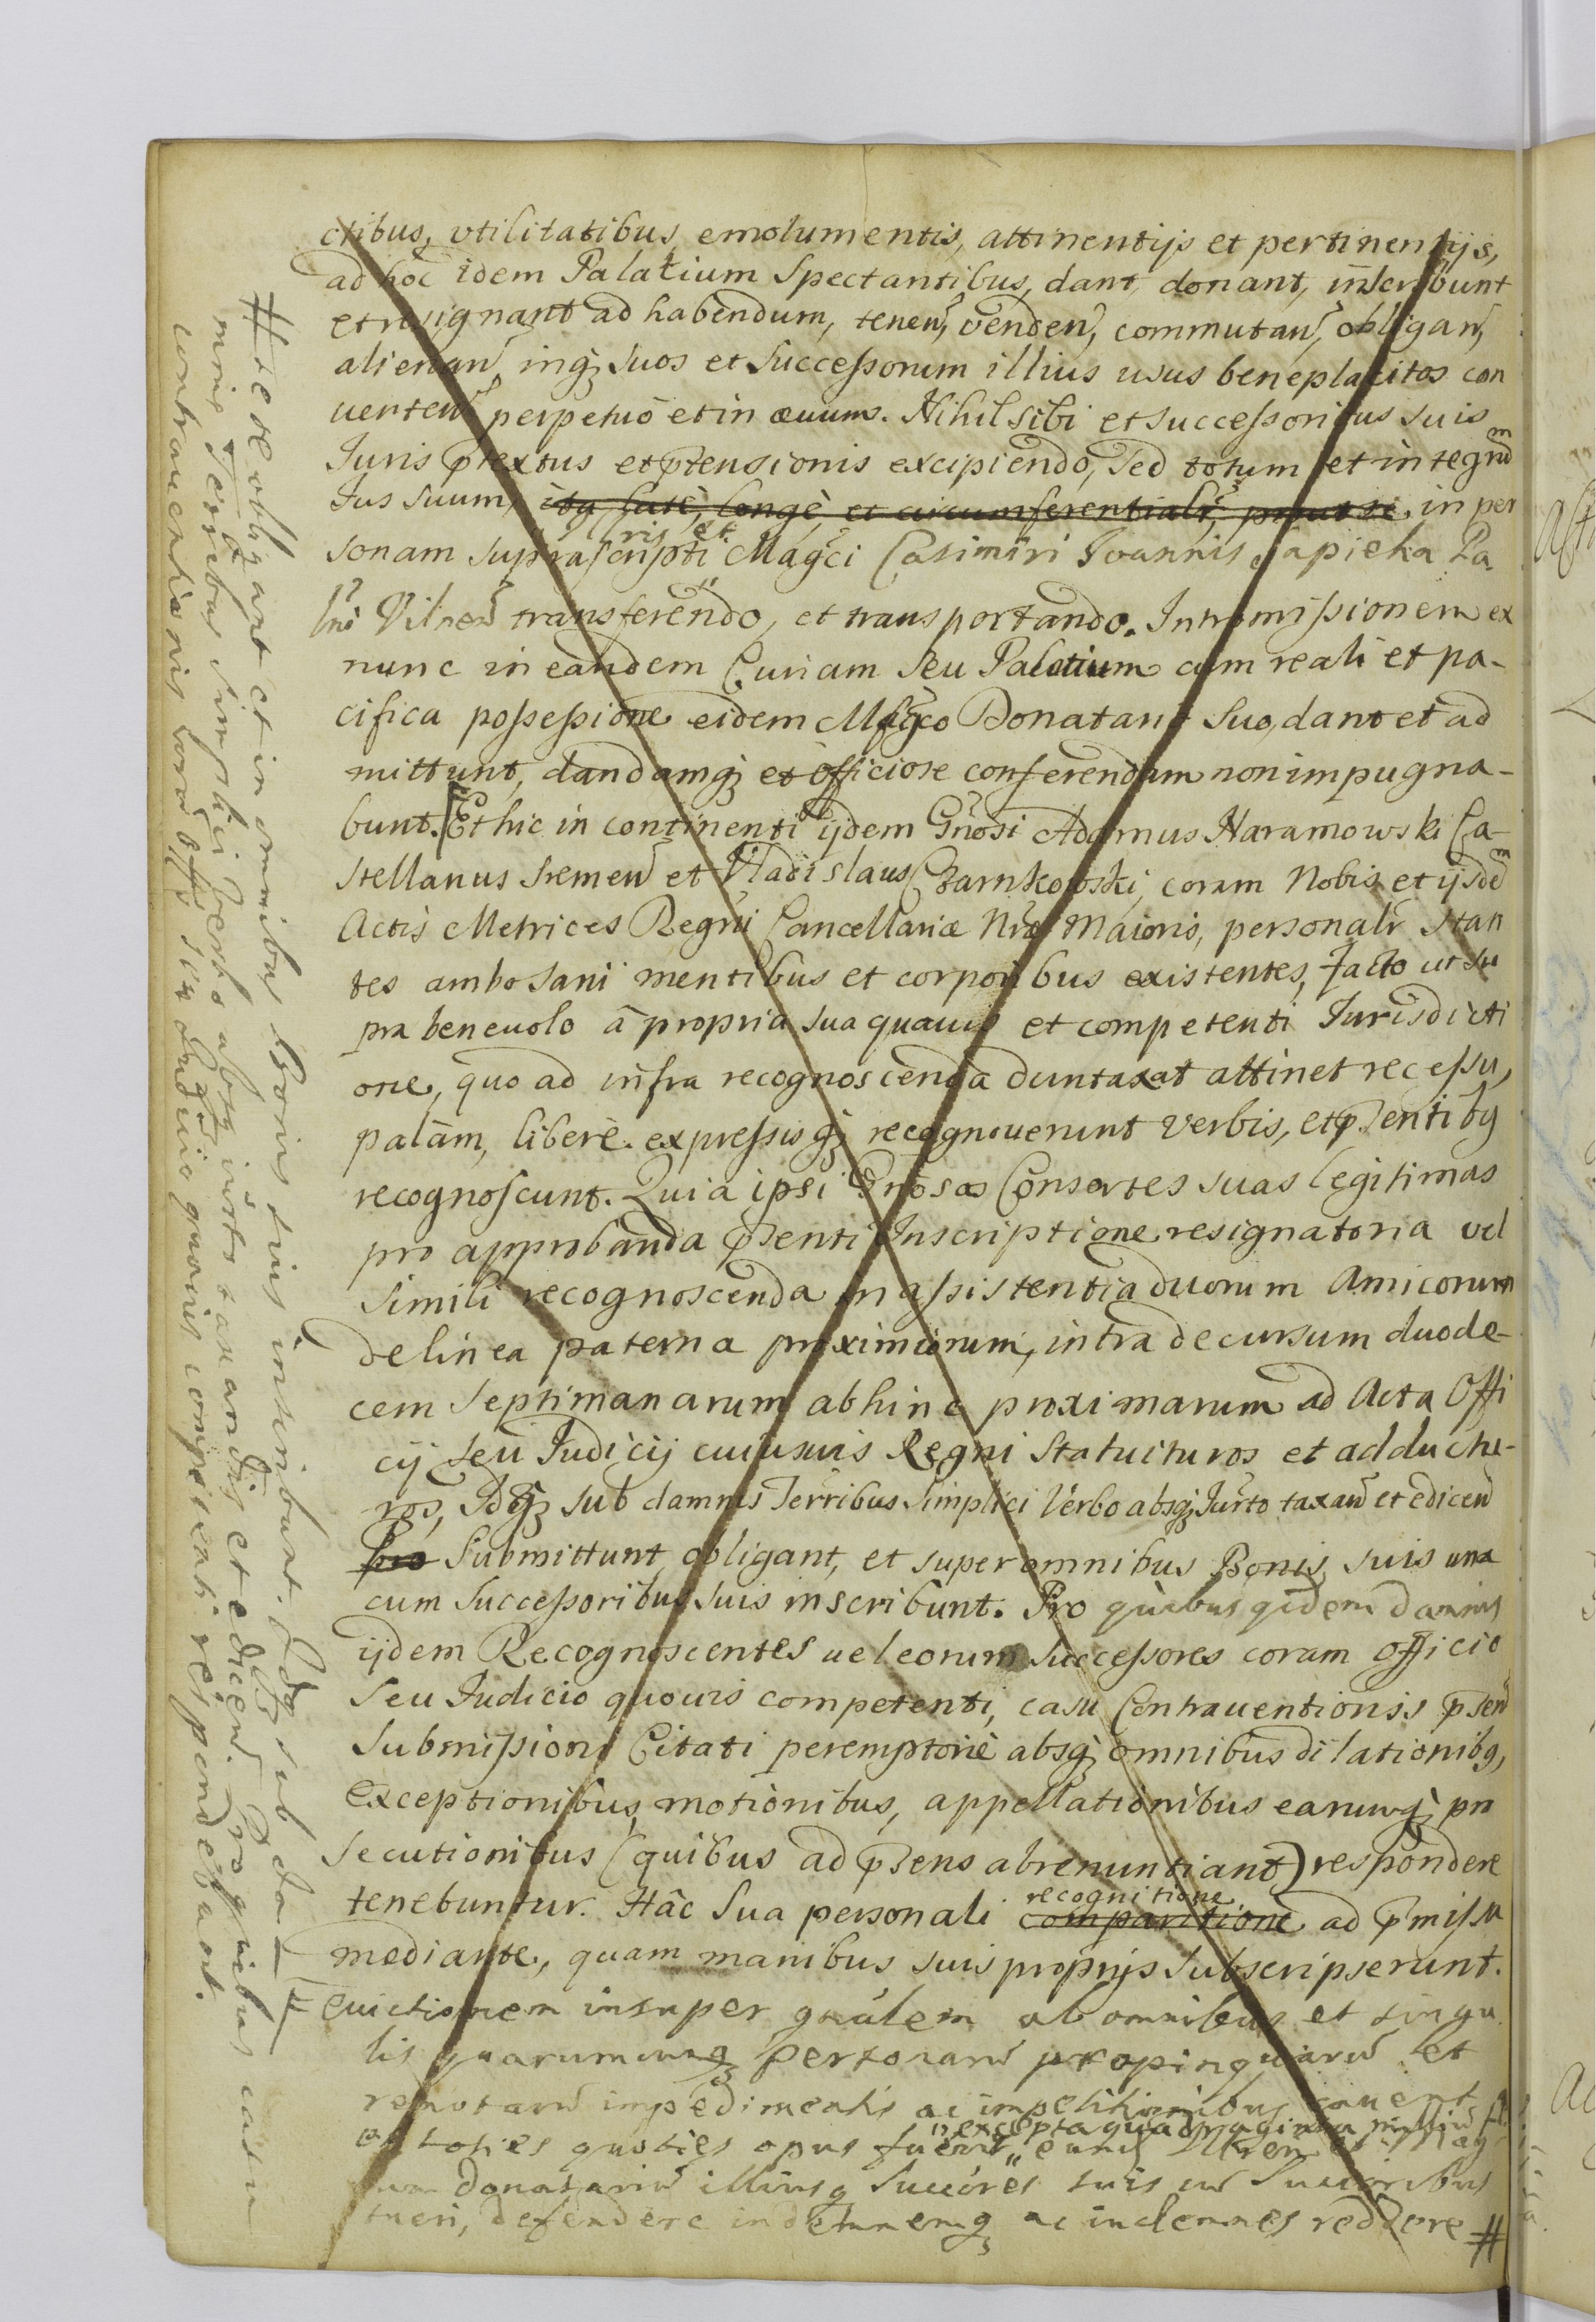 ctibus, vtilitatibus emolumentis, attinentijs et pertinentijs,
ad hoc idem Palatium Spectantibus, dant donant, inscribunt
et resignant ad habendum, teneñ, vendeñ, commutañ, obligañ,
alienañ, inq₃ suos et Successorum illius usus beneplacitos con
uerteñ perpetuò et in æuum. Nihil sibi et successoribus suis
Iuris p̄textus et p̄tensionis excipiendo, Sed totum et integrũm
Ius suum, ita latè, longè, et circumferentialr̃, prout se in per
sonam suprascripti Magc̃i Casimiri Ioannis Sapieha Pa
lni Vilneñ transferendo, et transportando. Intromissionem ex
nunc in eandem Curiam seu Palatium cum reali et pa-
cifica possessione eidem Mfgco Donatario Suo, dant et ad
mittunt, dandamq₃ et officiose conferendam non impugna-
bunt. Et hic in continenti ijdem Gnõsi Adamus Naramowski Ca-
stellanus Sremeñ et Vladislaus Czarnkowski, coram Nobis et ijsdem
Actis Metrices Regni Cancellariæ Nræ Maioris, personalr̃ stan
tes ambo sani mentibus et corporibus existentes, facto ut su
pra beneuolo à propria sua quauis et competenti Iurisdicti
one, quo ad infra recognoscenda duntaxat attinet recessu,
palàm, liberè expressisq₃ recognouerunt verbis, et p̄sentibg
recognoscunt. Quia ipsi Gnõsas Consortes suas legitimas
pro approbanda p̄senti Inscriptione resignatoria vel
simili recognoscenda in assistentia duorum Amicorum
de linea paterna proximiorum, intra decursum duode-
cem Septimanarum abhinc proximarum ad Acta Offi
cij seu Iudicij cuiusuis Regni Statuituros et adductu-
ros, Idq₃ sub damnis Terribus Simplici Verbo absq₃ Iurto taxañ et ediceñ
pro Submittunt, obligant, et super omnibus Bonis suis una
cum Successoribus suis inscribunt. Pro quibus qidem damnis
ijdem Recognoscentes uel eorum Successores coram officio
seu Iudicio quouis competenti, casu Contrauentionis p̄señ
Submissioni Citati peremptoriè absq₃ omnibus dilationibg,
Exceptionibus, motionibus, appellationibus earumq₃ pro
secutionibus (quibus ad p̄sens abrenuntiant) respondere
tenebuntur. Hâc Sua personali comparitione recognitione ad p̄missa
mediante, quam manibus suis proprijs subscripserunt.
Euictionem insuper gnãlem ab omnibus et singu
lis quarumcunq₃ personarũ propinquarũ et
remotarũ impedimentis ac impetitionibus cauent
toties quoties opus fuerit excepta quadraginta
Donatariũ illiusq₃ Succores suis cũ Succoribus
tueri, defendere indemnemq₃ ac indemnes reddere #
# sese obligant et in omnibus Bonis suis inscribunt. Idq₃ sub da-
mnis Terribus simplici verbo absq₃ iurto taxandis et ediceñ. Pro quibus casu
contrauentionis coram Offo seu Iudicio quouis competenti respondebunt.